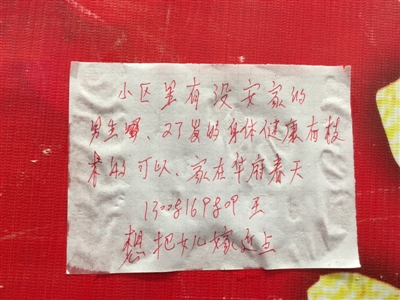 小区里有没安家的
男生嘛、27岁的身体健康有技
术的可以、家在华庭春天
王
想把女儿嫁近点